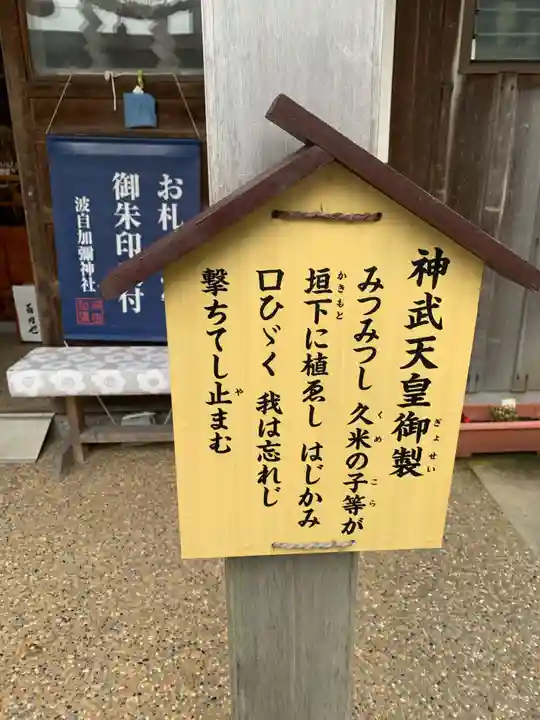 神武天皇御製
ぎょせい
みつみつし 久米の子等が
くめ こら
垣下に植ゑし はじかみ
かきもと
口ひゞく 我は忘れじ
撃ちてし止まむ
や
お札
御朱印
付
波自加彌神社